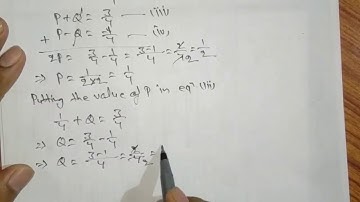 P+Q = 3/4 —— (iii)
+ P-Q = -1/4 —— (iv)
2P = 3/4 - 1/4 = 3-1/4 = 2/4 2 = 1/2
⇒ P = 1/2×2 = 1/4
Putting the value of P in eqn (iii)
1/4 + Q = 3/4
⇒ Q = 3/4 - 1/4
⇒ Q = 3-1/4 = 2/4 2 =